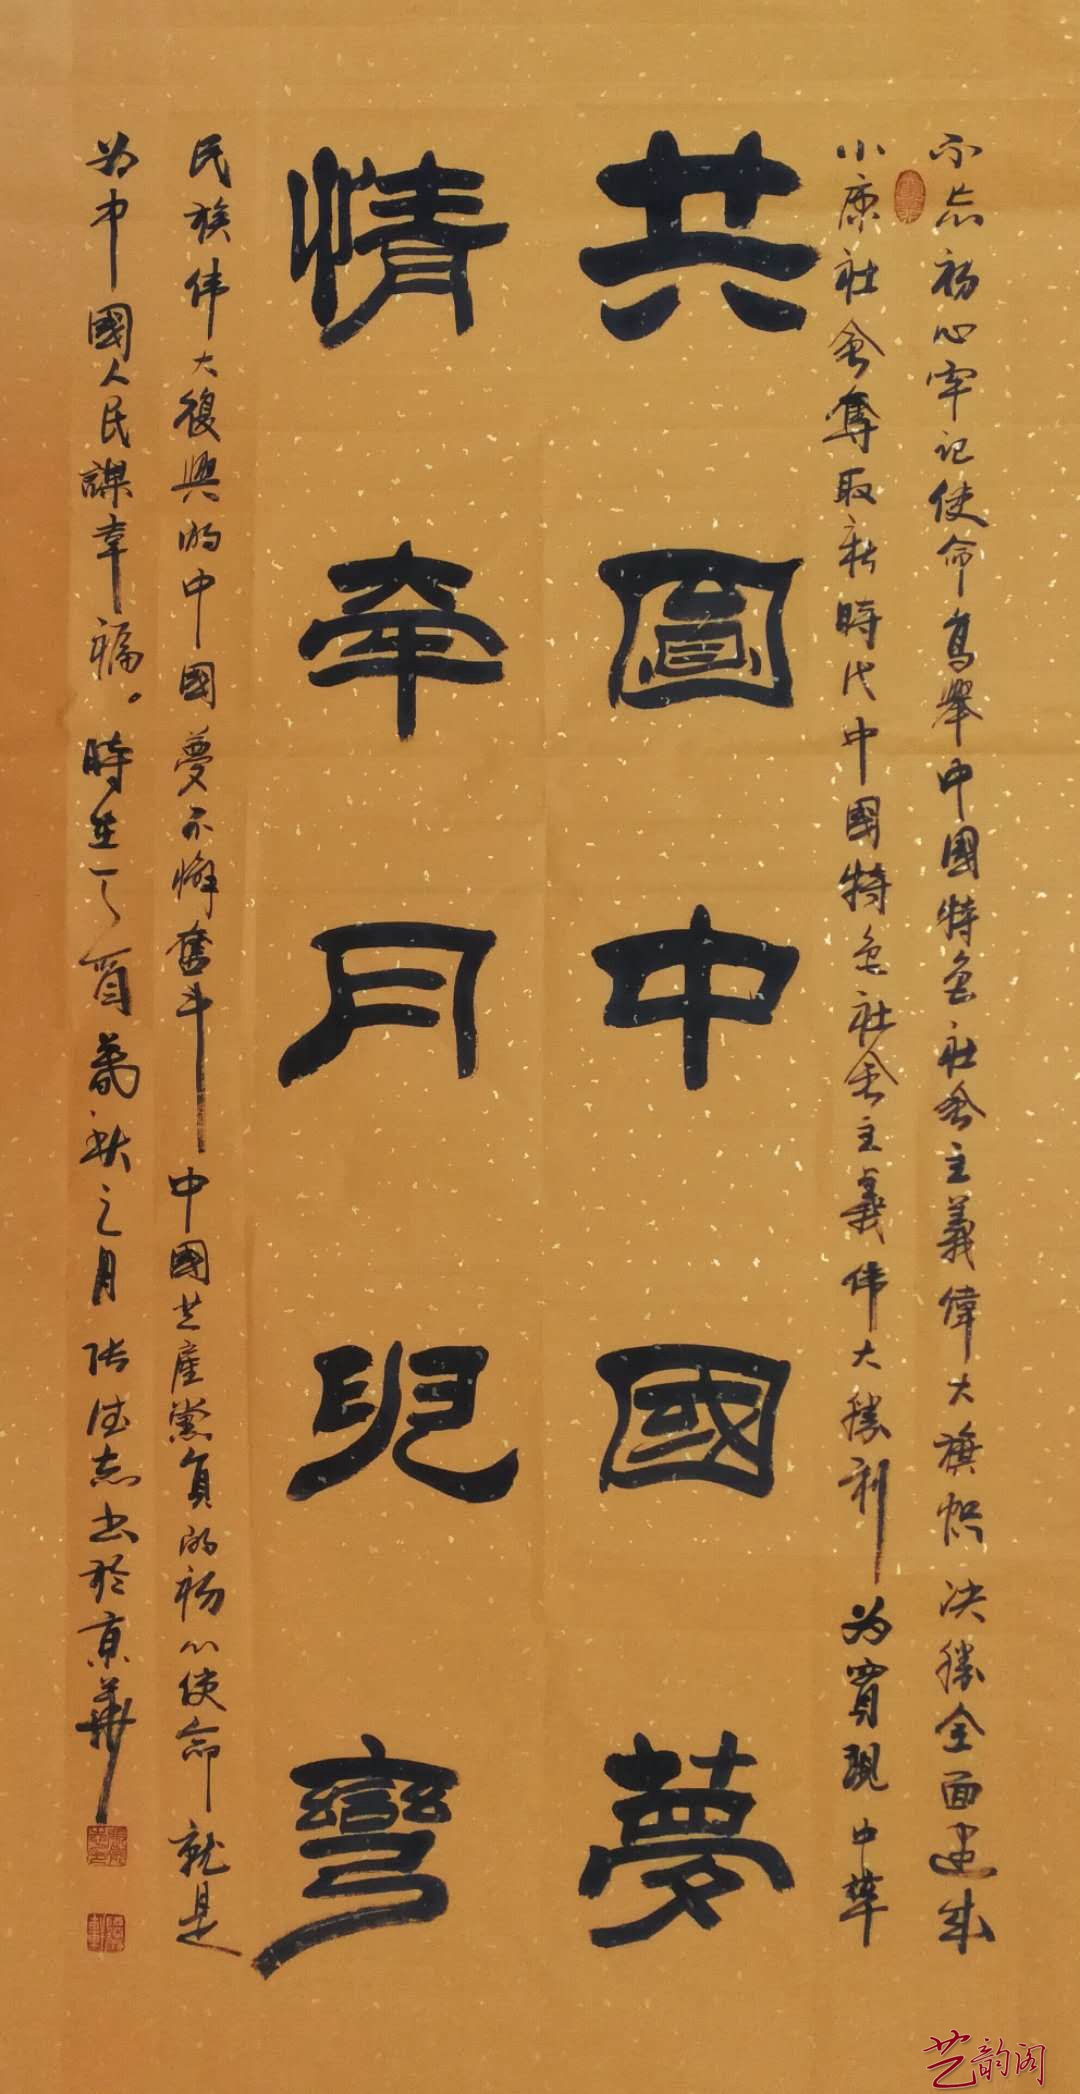 不忘初心牢记使命高舉中国特色社会主義偉大旗帜决勝全面建成
小康社会奪取新時代中國特色社会主義伟大勝利为實現中華
共圖中國夢
情牽月兒彎
民族伟大復興的中国夢不懈奮斗中國共產黨員的初心使命就是
为中國人民謀幸福。時在丁酉菊秋之月張德志书於京華
艺韵阁